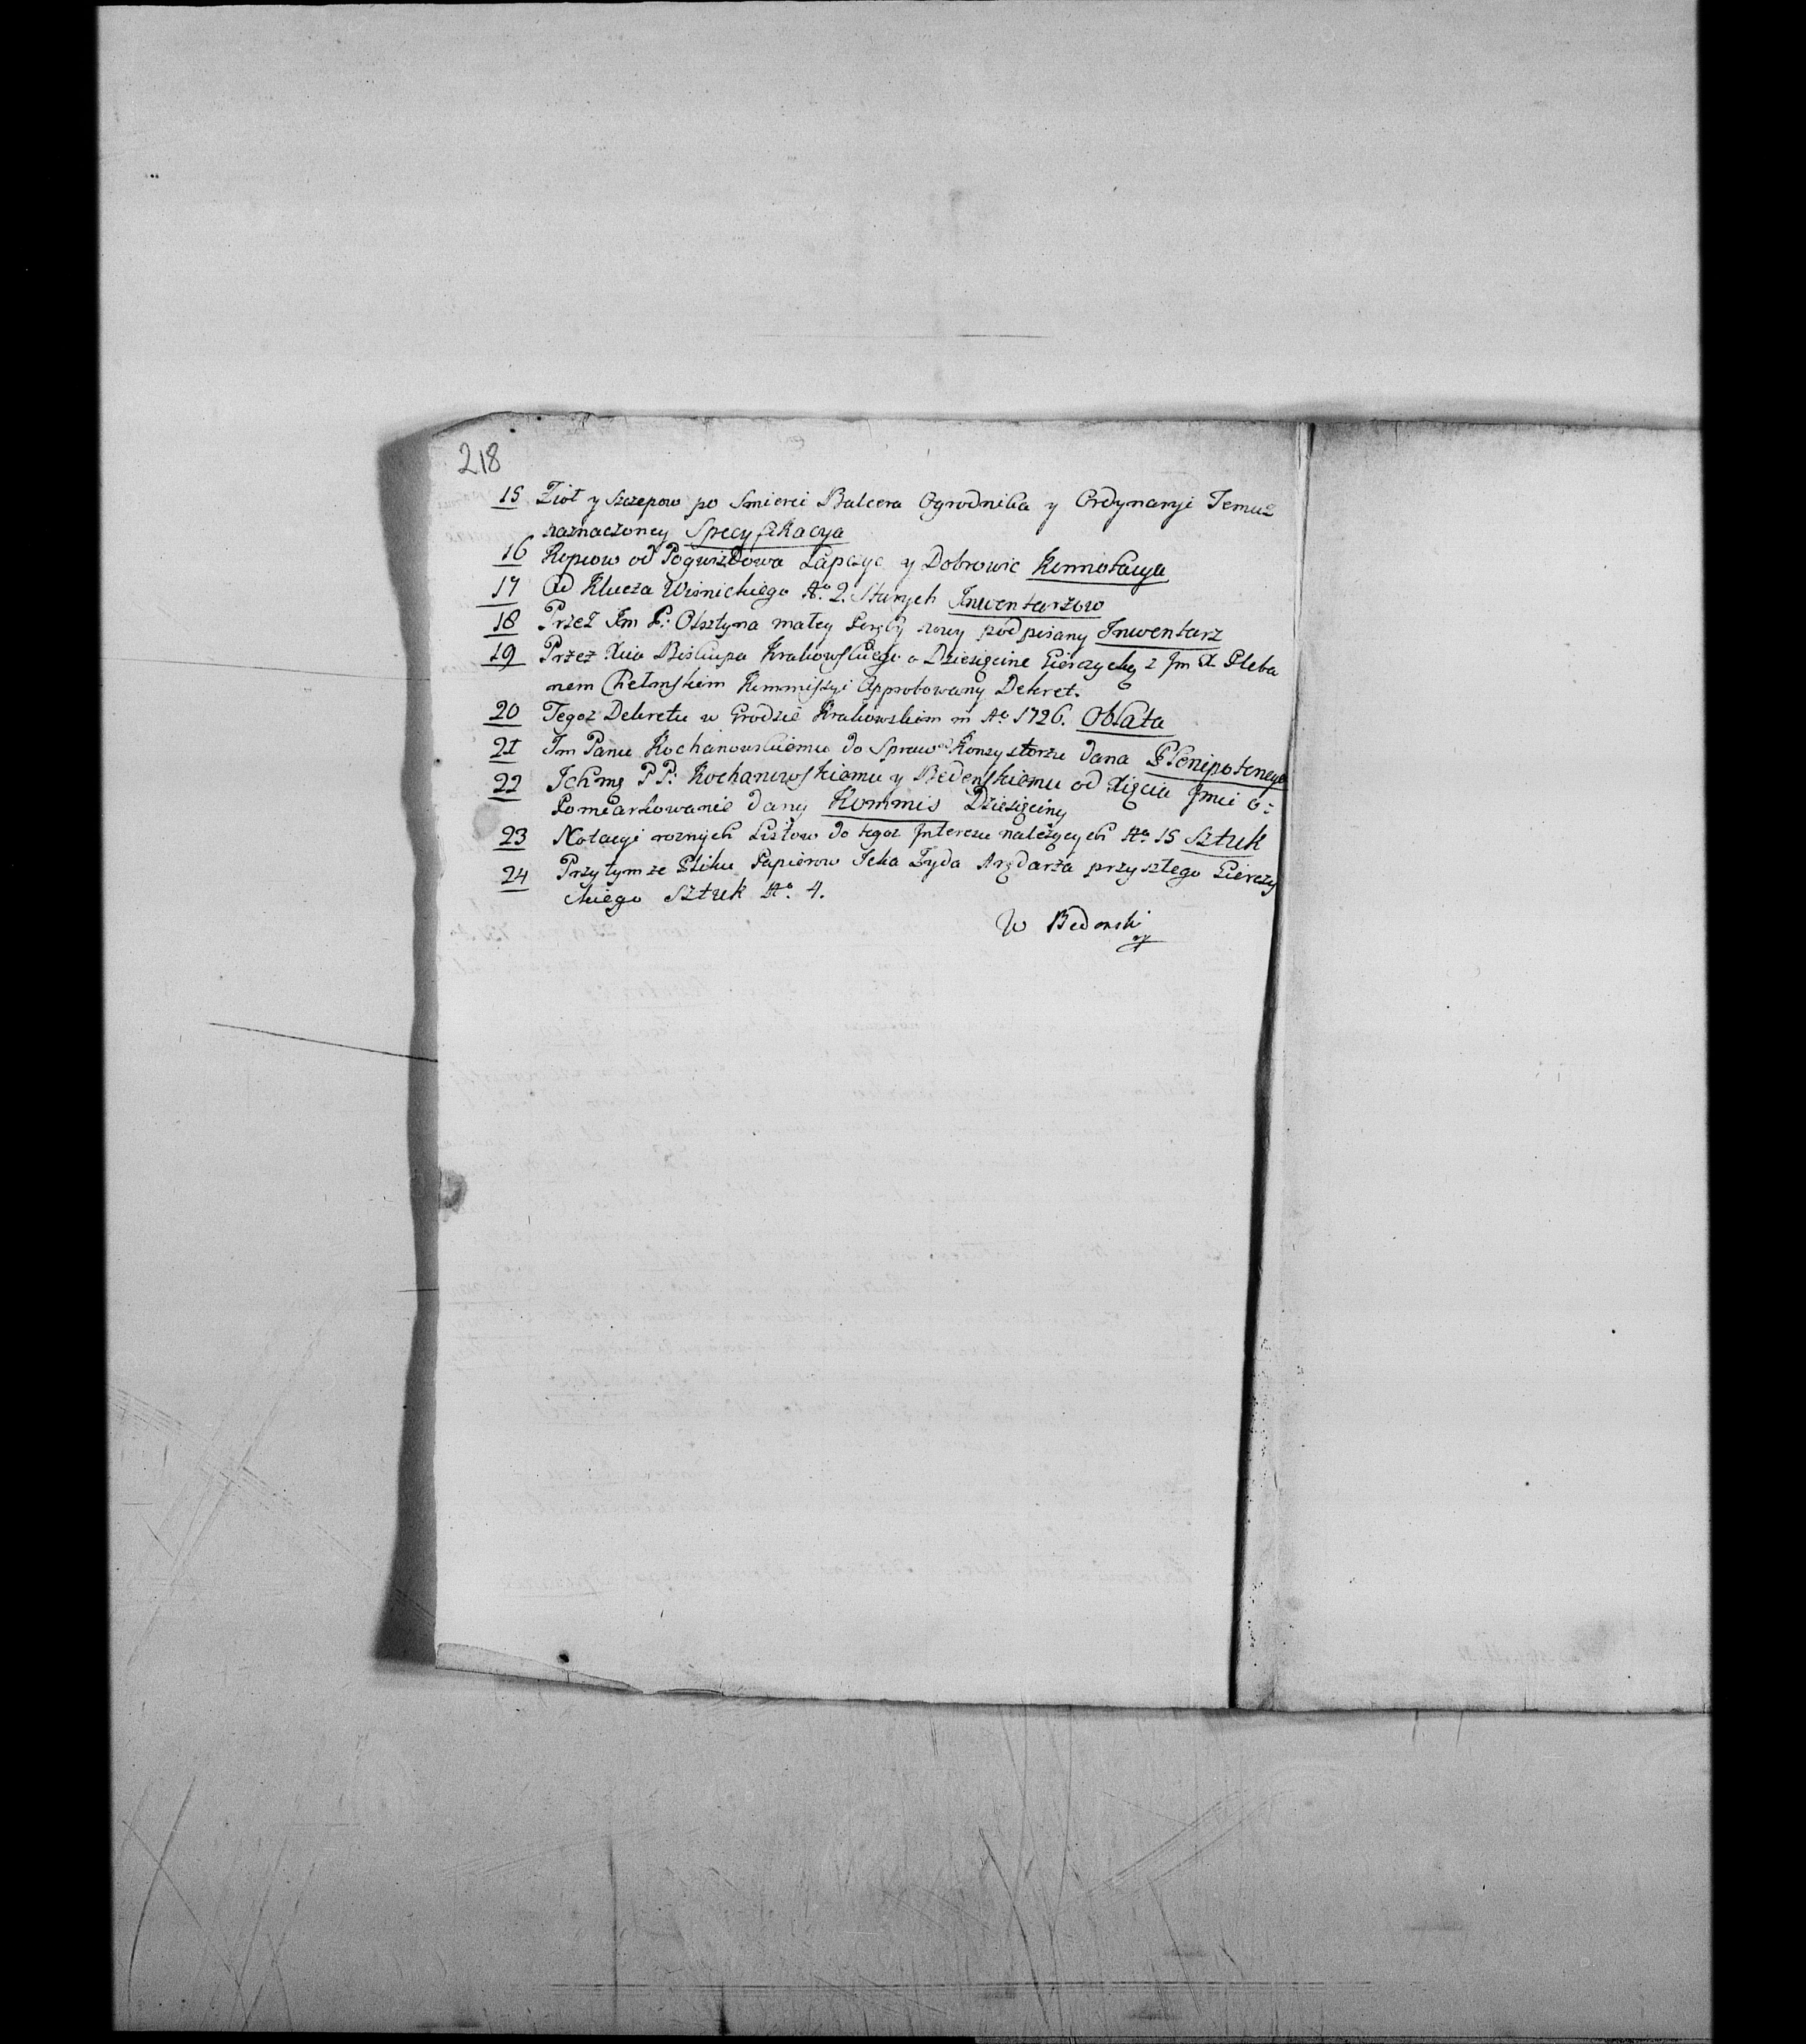 218
15 Ziół y Szczepow po Smierci Balcera Ogrodnika y Ordynaryi Temuz
naznaczoney Specyfikacya
16 Kopcow od Pogwizdowa Łapczyc y Dobrowic Konnotacya
17 Od Klucza Wisnickiego No. 2. Starych Inwentarzow
18 Przez Jm P: Olsztyna małey Poręby nowy podpisany Inwentarz
19 Przez Xcia Biskupa Krakowskiego o Dziesięcine Gierczycką z Jm X Pleba
nem Chełmskiem Kommissyi Approbowany Dekret.
20 Tegoz Dekretu w Grodzie Krakowskim in Ao 1726. Oblata
21 Jm Panu Kochanowskiemu do Spraw Konzystorzu dana Plenipotencya
22 Ichmę PP: Kochanowskiemu y Bedenskiemu od Xięcia Jmci o:
Pomiarkowanie dany Kommis Dziesięciny
23 Notacyi roznych Listow do tegoz Interesu należących No 15 Sztuk
24 Przytymze Pliku Papierow Icka Zyda Arędarza przyszłego Gierczy
ckiego Sztuk No. 4.
W Bedonski